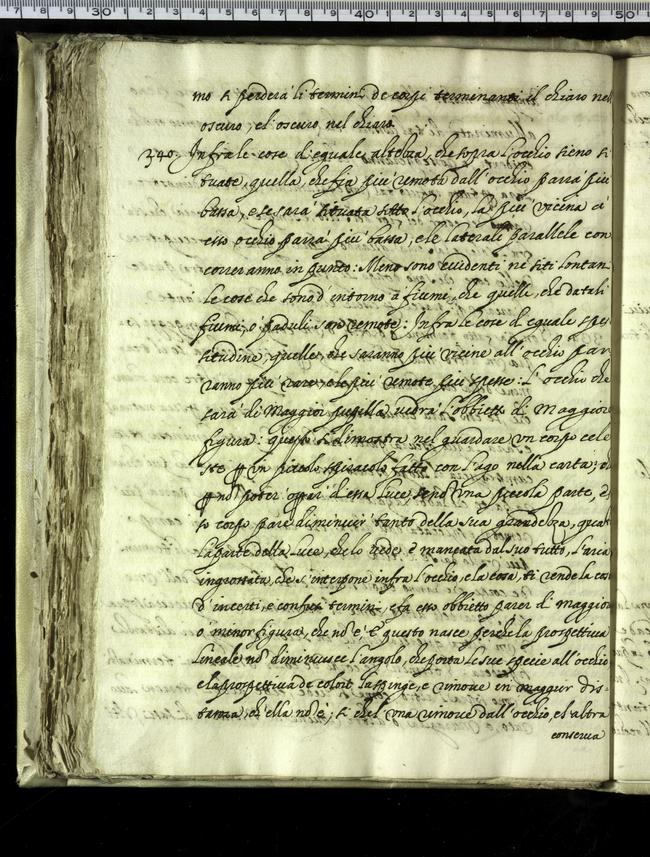 mo si perderà li termini de corpi terminanti il chiaro nel
oscuro, el oscuro nel chiaro
340. Infra le cose d'equale altezza, che sopra l'occhio sieno si
tuate, quella, che fia più remota dall'occhio parrà più
bassa, e se sarà situata sotto l'occhio, la più vicina a
esso occhio parrà più bassa, e le laterali parallele con
correranno in punto: Meno sono evidenti ne siti lontan
le cose che sono d'intorno a fiumi, che quelle, che da tali
fiumi, o paduli son remote: Infra le cose d'equale spes
situdine, quelle, che saranno più vicine all'occhio par
ranno più rare, e le più remote più spesse: L'occhio che
sarà di Maggior pupilla vedrà l'obbietto di Maggior
figura: questo si dimostra nel guardare un corpo cele
ste p in piccolo spiracolo fatto con l'ago nella carta, che
p nō poter oprar d'essa luce, se nō una piccola parte, es
so corpo pare diminuir tanto della sua grandezza, quāt
la parte della luce, che lo vede è mancata dal suo tutto, l'aria
ingrossata, che s'interpone infra l'occhio, e la cosa, ti rende la cos
d'incerti, e confusi termini, e fa esso obbietto parer di maggior
o menor figura, che nō è, E questo nasce perche la prospettiva
lineale nō diminuisce l'angolo, che porta le sue specie all'occhio
e la prospettiva de colori la spinge, e rimove in maggior dis-
tanza, ch'ella nō è; si che l'una rimove dall'occhio, el altra
conserva